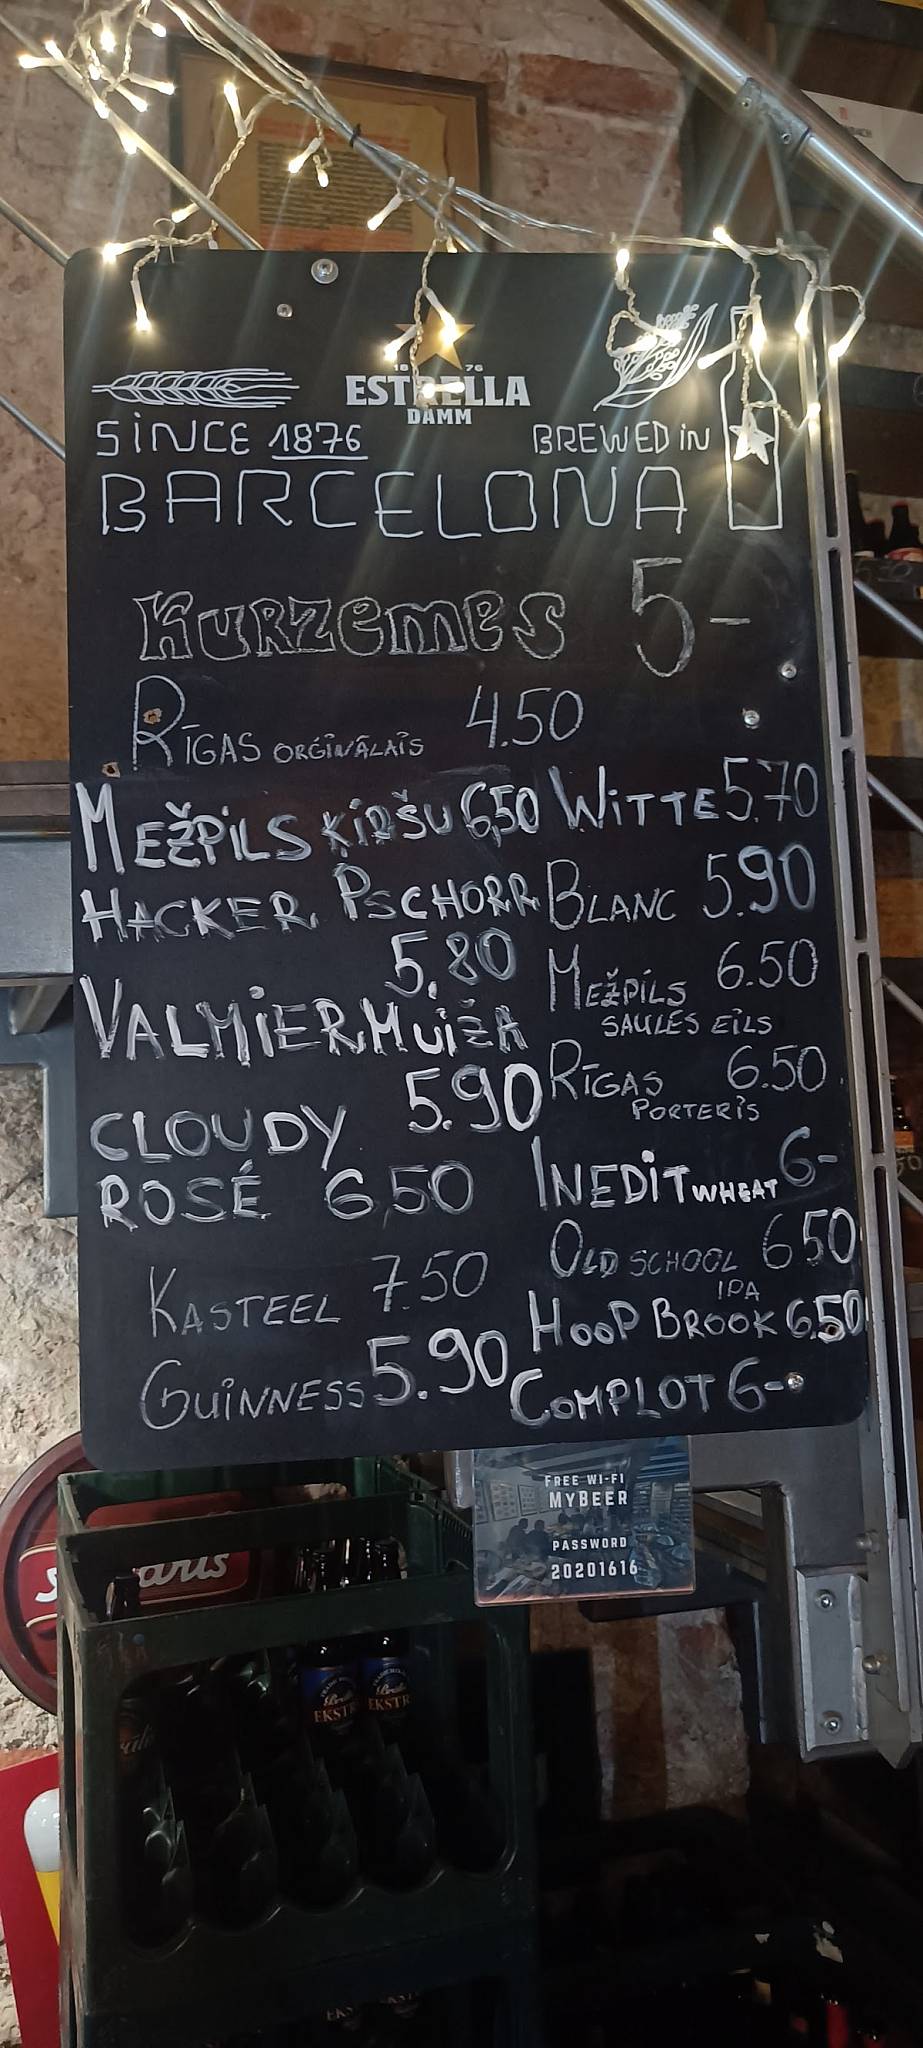 18 76
ESTRELLA
DAMM
SINCE 1876
BREWED IN
BARCELONA
KURZEMES 5-
RĪGAS ORĢINĀLAIS 4.50
MEŽPILS ĶIRŠU 6,50
HACKER PSCHORR
5.80
VALMIERMUIŽA
5.90
CLOUDY
ROSÉ 6,50
KASTEEL 7.50
GUINNESS 5.90
WITTE 5.70
BLANC 5.90
MEŽPILS 6.50
SAULES EILS
RĪGAS 6.50
PORTERIS
INEDIT WHEAT 6-
OLD SCHOOL 6 50
IPA
HOOP BROOK 6.50
COMPLOT 6-
FREE WI-FI
MYBEER
PASSWORD
20201616
EKSTR
EKSTR